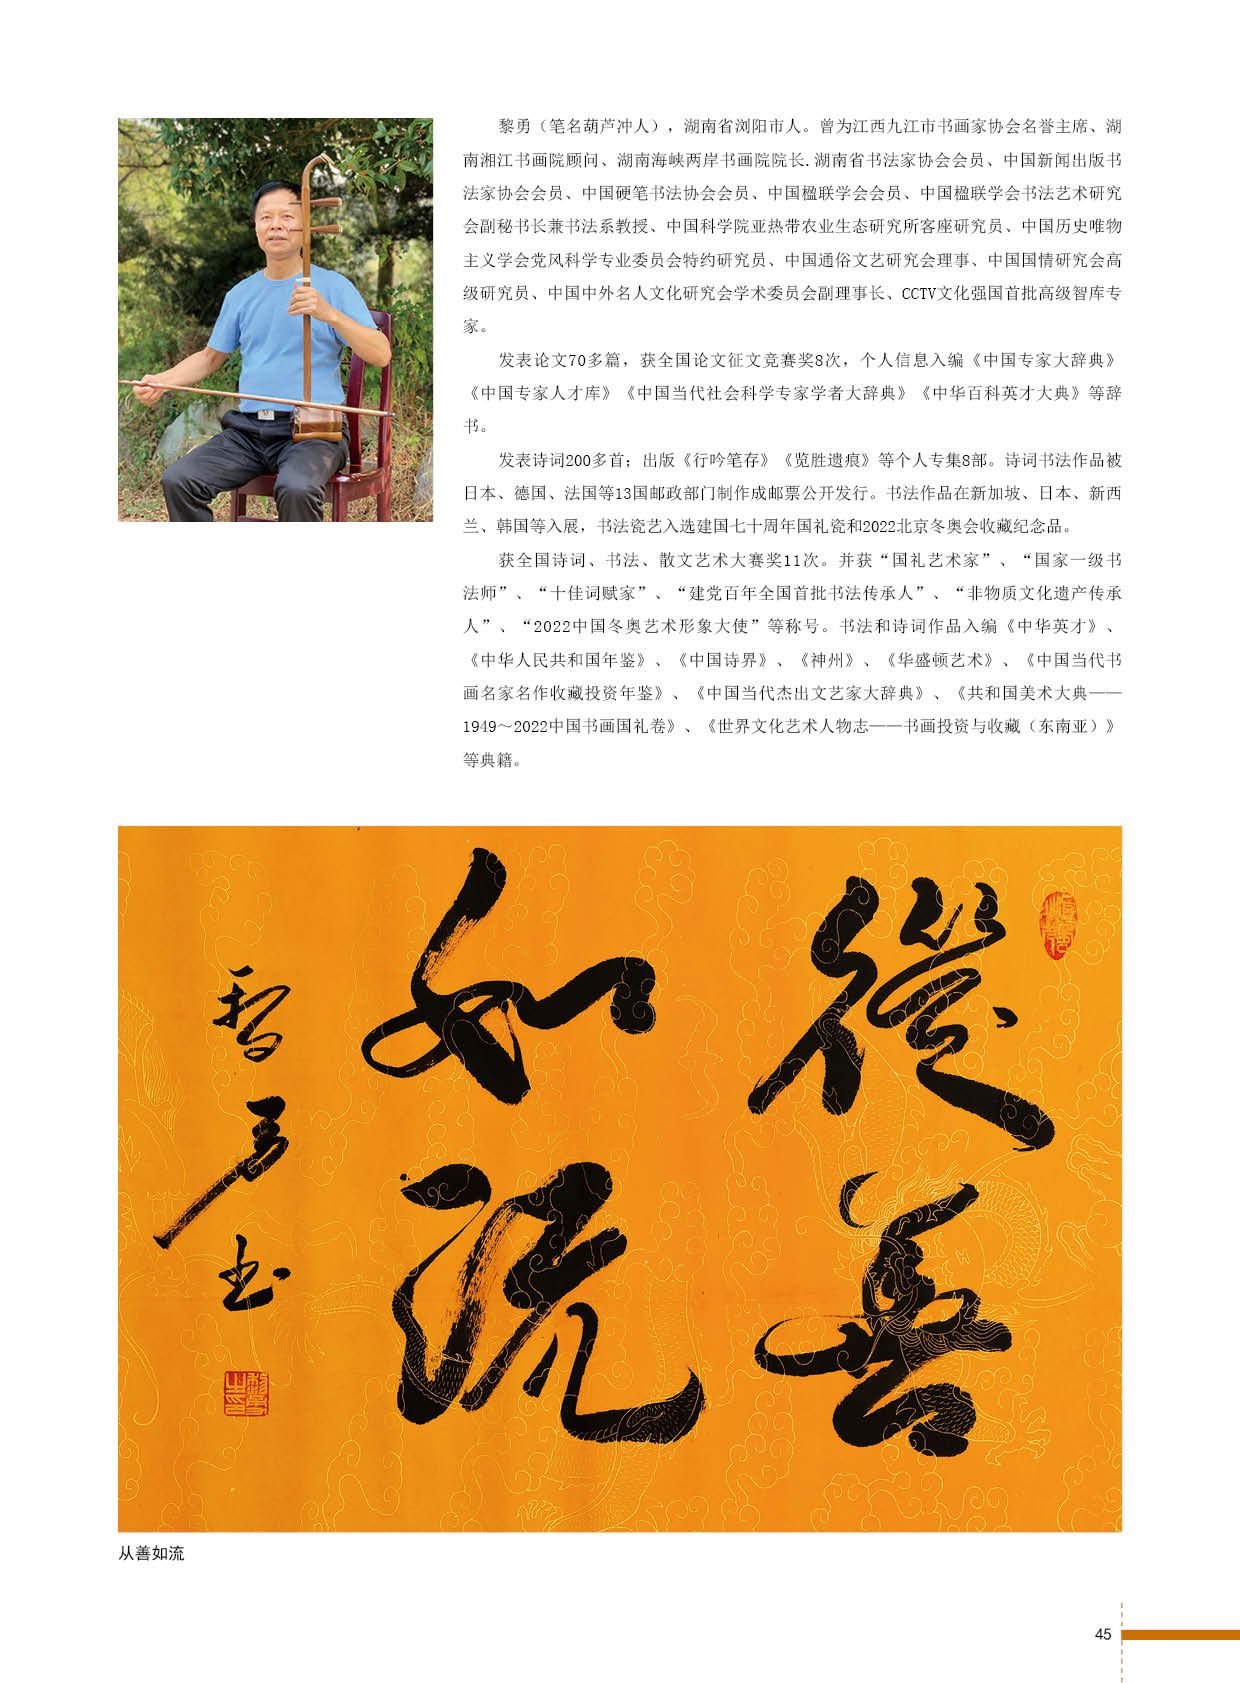 黎勇（笔名葫芦冲人），湖南省浏阳市人。曾为江西九江市书画家协会名誉主席、湖
南湘江书画院顾问、湖南海峡两岸书画院院长.湖南省书法家协会会员、中国新闻出版书
法家协会会员、中国硬笔书法协会会员、中国楹联学会会员、中国楹联学会书法艺术研究
会副秘书长兼书法系教授、中国科学院亚热带农业生态研究所客座研究员、中国历史唯物
主义学会党风科学专业委员会特约研究员、中国通俗文艺研究会理事、中国国情研究会高
级研究员、中国中外名人文化研究会学术委员会副理事长、CCTV文化强国首批高级智库专
家。
发表论文70多篇，获全国论文征文竞赛奖8次，个人信息入编《中国专家大辞典》
《中国专家人才库》《中国当代社会科学专家学者大辞典》《中华百科英才大典》等辞
书。
发表诗词200多首；出版《行吟笔存》《览胜遗痕》等个人专集8部。诗词书法作品被
日本、德国、法国等13国邮政部门制作成邮票公开发行。书法作品在新加坡、日本、新西
兰、韩国等入展，书法瓷艺入选建国七十周年国礼瓷和2022北京冬奥会收藏纪念品。
获全国诗词、书法、散文艺术大赛奖11次。并获“国礼艺术家”、“国家一级书
法师”、“十佳词赋家”、“建党百年全国首批书法传承人”、“非物质文化遗产传承
人”、“2022中国冬奥艺术形象大使”等称号。书法和诗词作品入编《中华英才》、
《中华人民共和国年鉴》、《中国诗界》、《神州》、《华盛顿艺术》、《中国当代书
画名家名作收藏投资年鉴》、《中国当代杰出文艺家大辞典》、《共和国美术大典——
1949～2022中国书画国礼卷》、《世界文化艺术人物志——书画投资与收藏（东南亚）》
等典籍。
從善
如流
黎勇书
从善如流
45